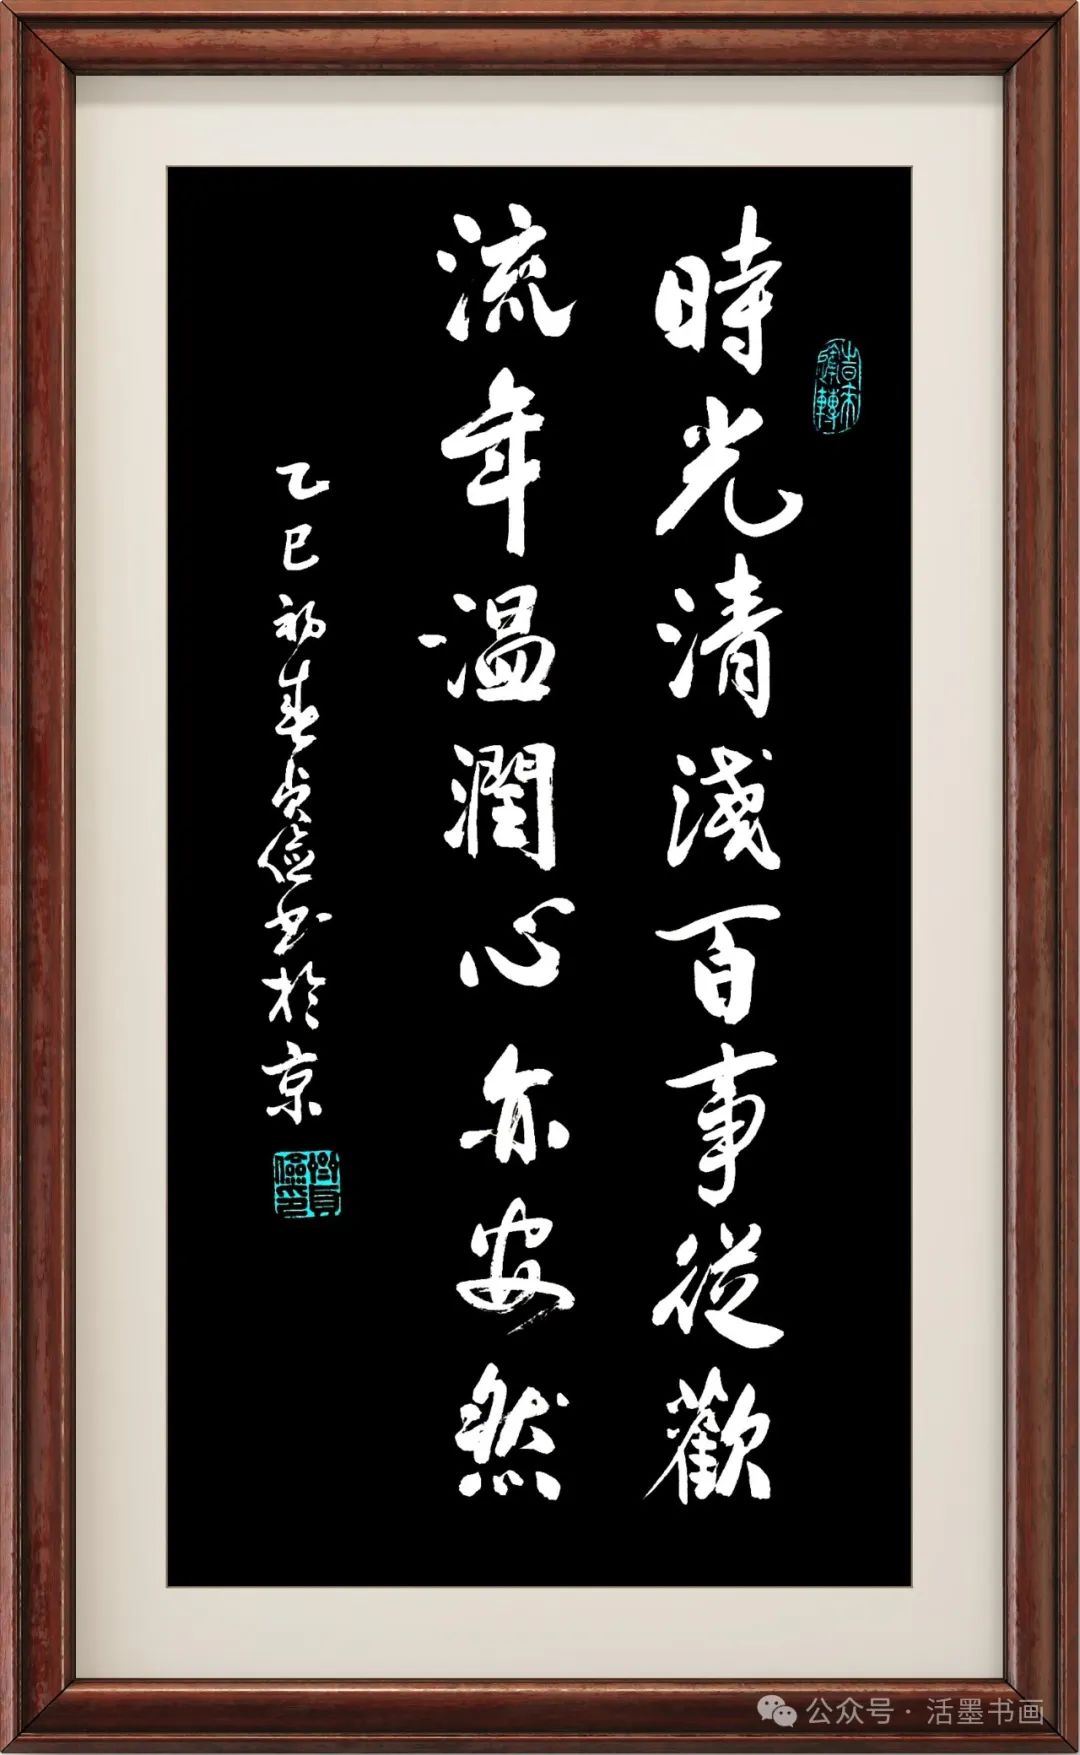 時光清淺百事從歡
流年温潤心亦安然
乙巳初春貞儉书於京
公众号·活墨书画